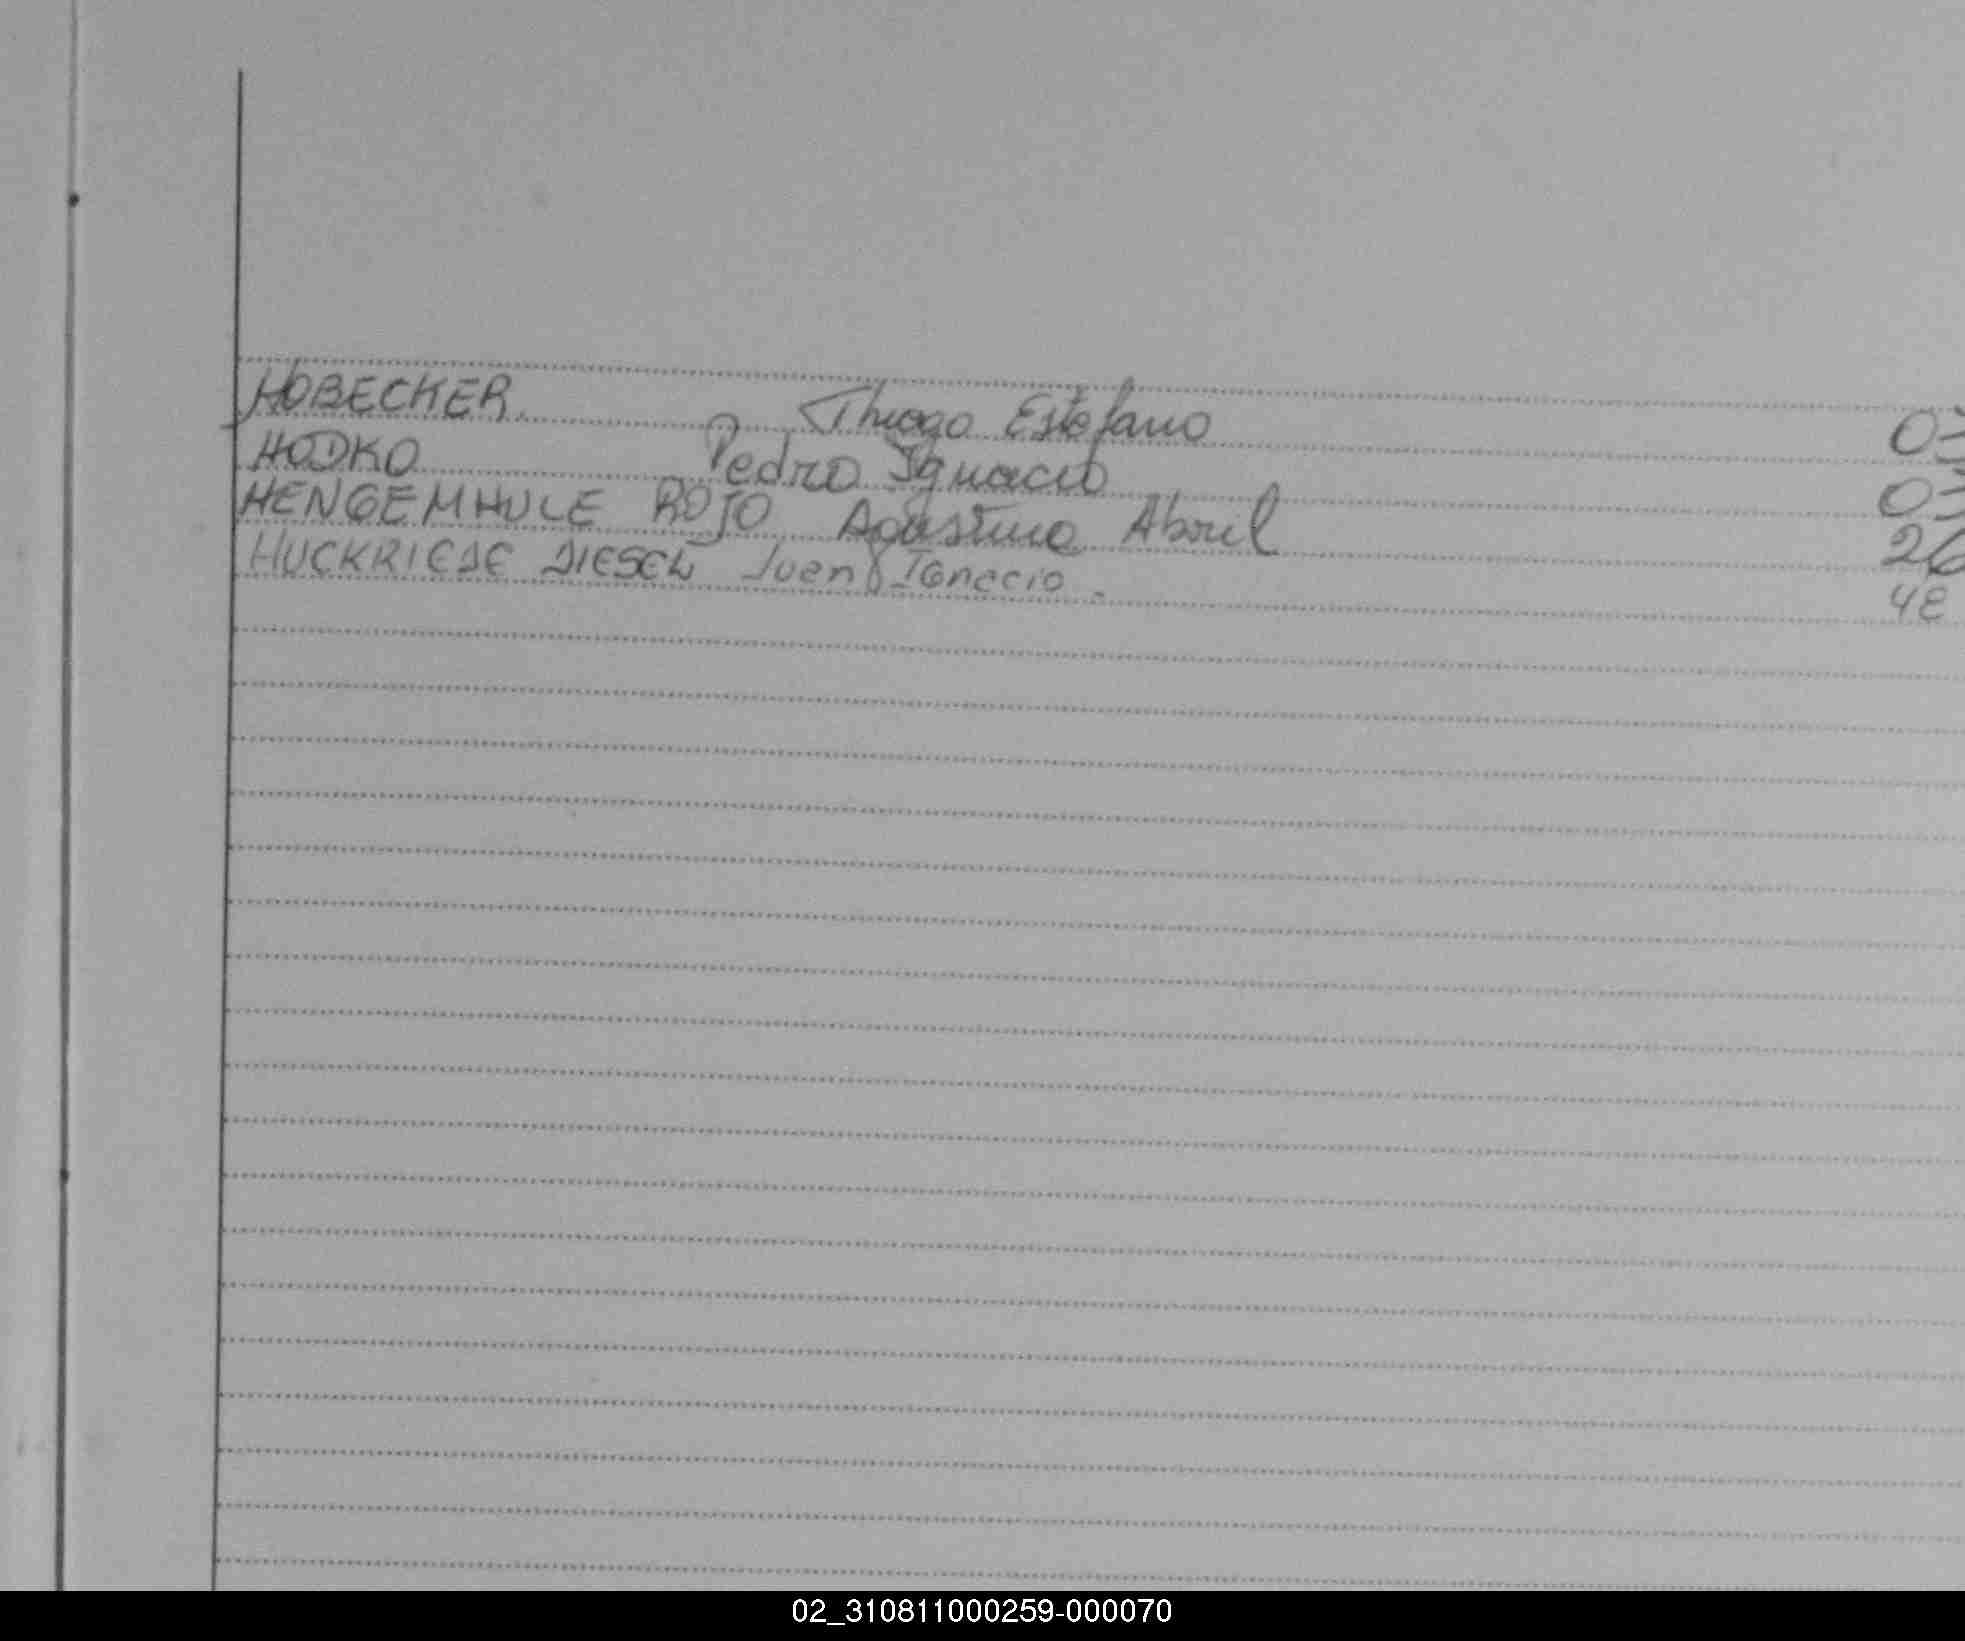 HOBECKER. Thiago Estefano 03
HODKO Pedro Ignacio 03
HENGEMHULE ROJO Agustina Abril 26
HUCKRIEDE DIESEL Juan Ignacio. 48
02_310811000259-000070